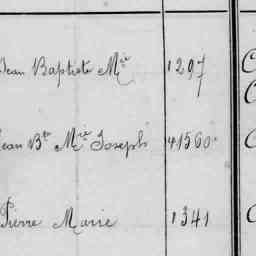 Jean Baptiste Mie 1297
Jean Bte Mie Joseph 41560
Pierre Marie 1341